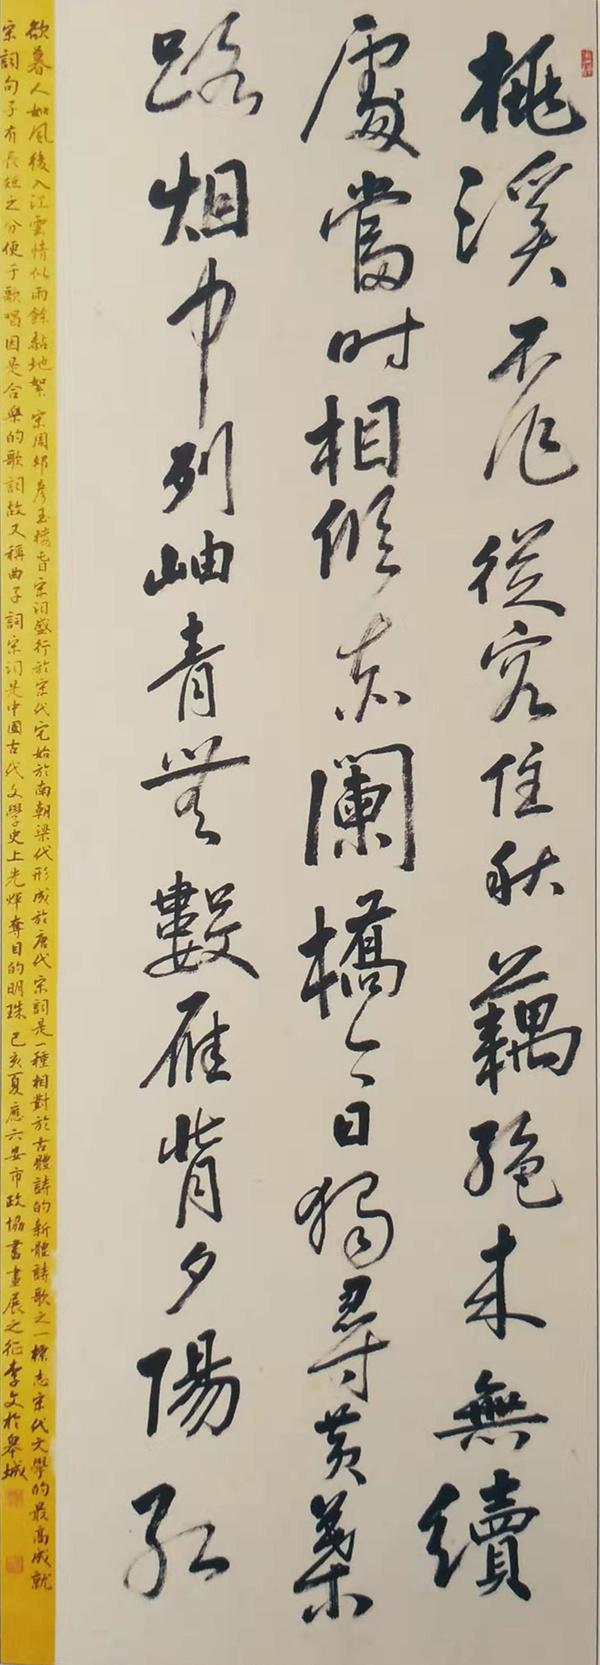 桃溪不作從容住秋藕絕来無續
處當时相候赤闌橋今日獨尋黄葉
路烟中列岫青無數雁背夕陽紅
欲暮人如風後入江雲情似雨餘黏地絮 宋周邦彦玉樓春宋词盛行於宋代它始於南朝梁代形成於唐代宋詞是一種相對於古體詩的新體詩歌之一標志宋代文學的最高成就
宋詞句子有長短之分便于歌唱因是合樂的歌詞故又稱曲子詞宋词是中國古代文學史上光輝奪目的明珠 己亥夏應六安市政協書畫展之征李文於皋城